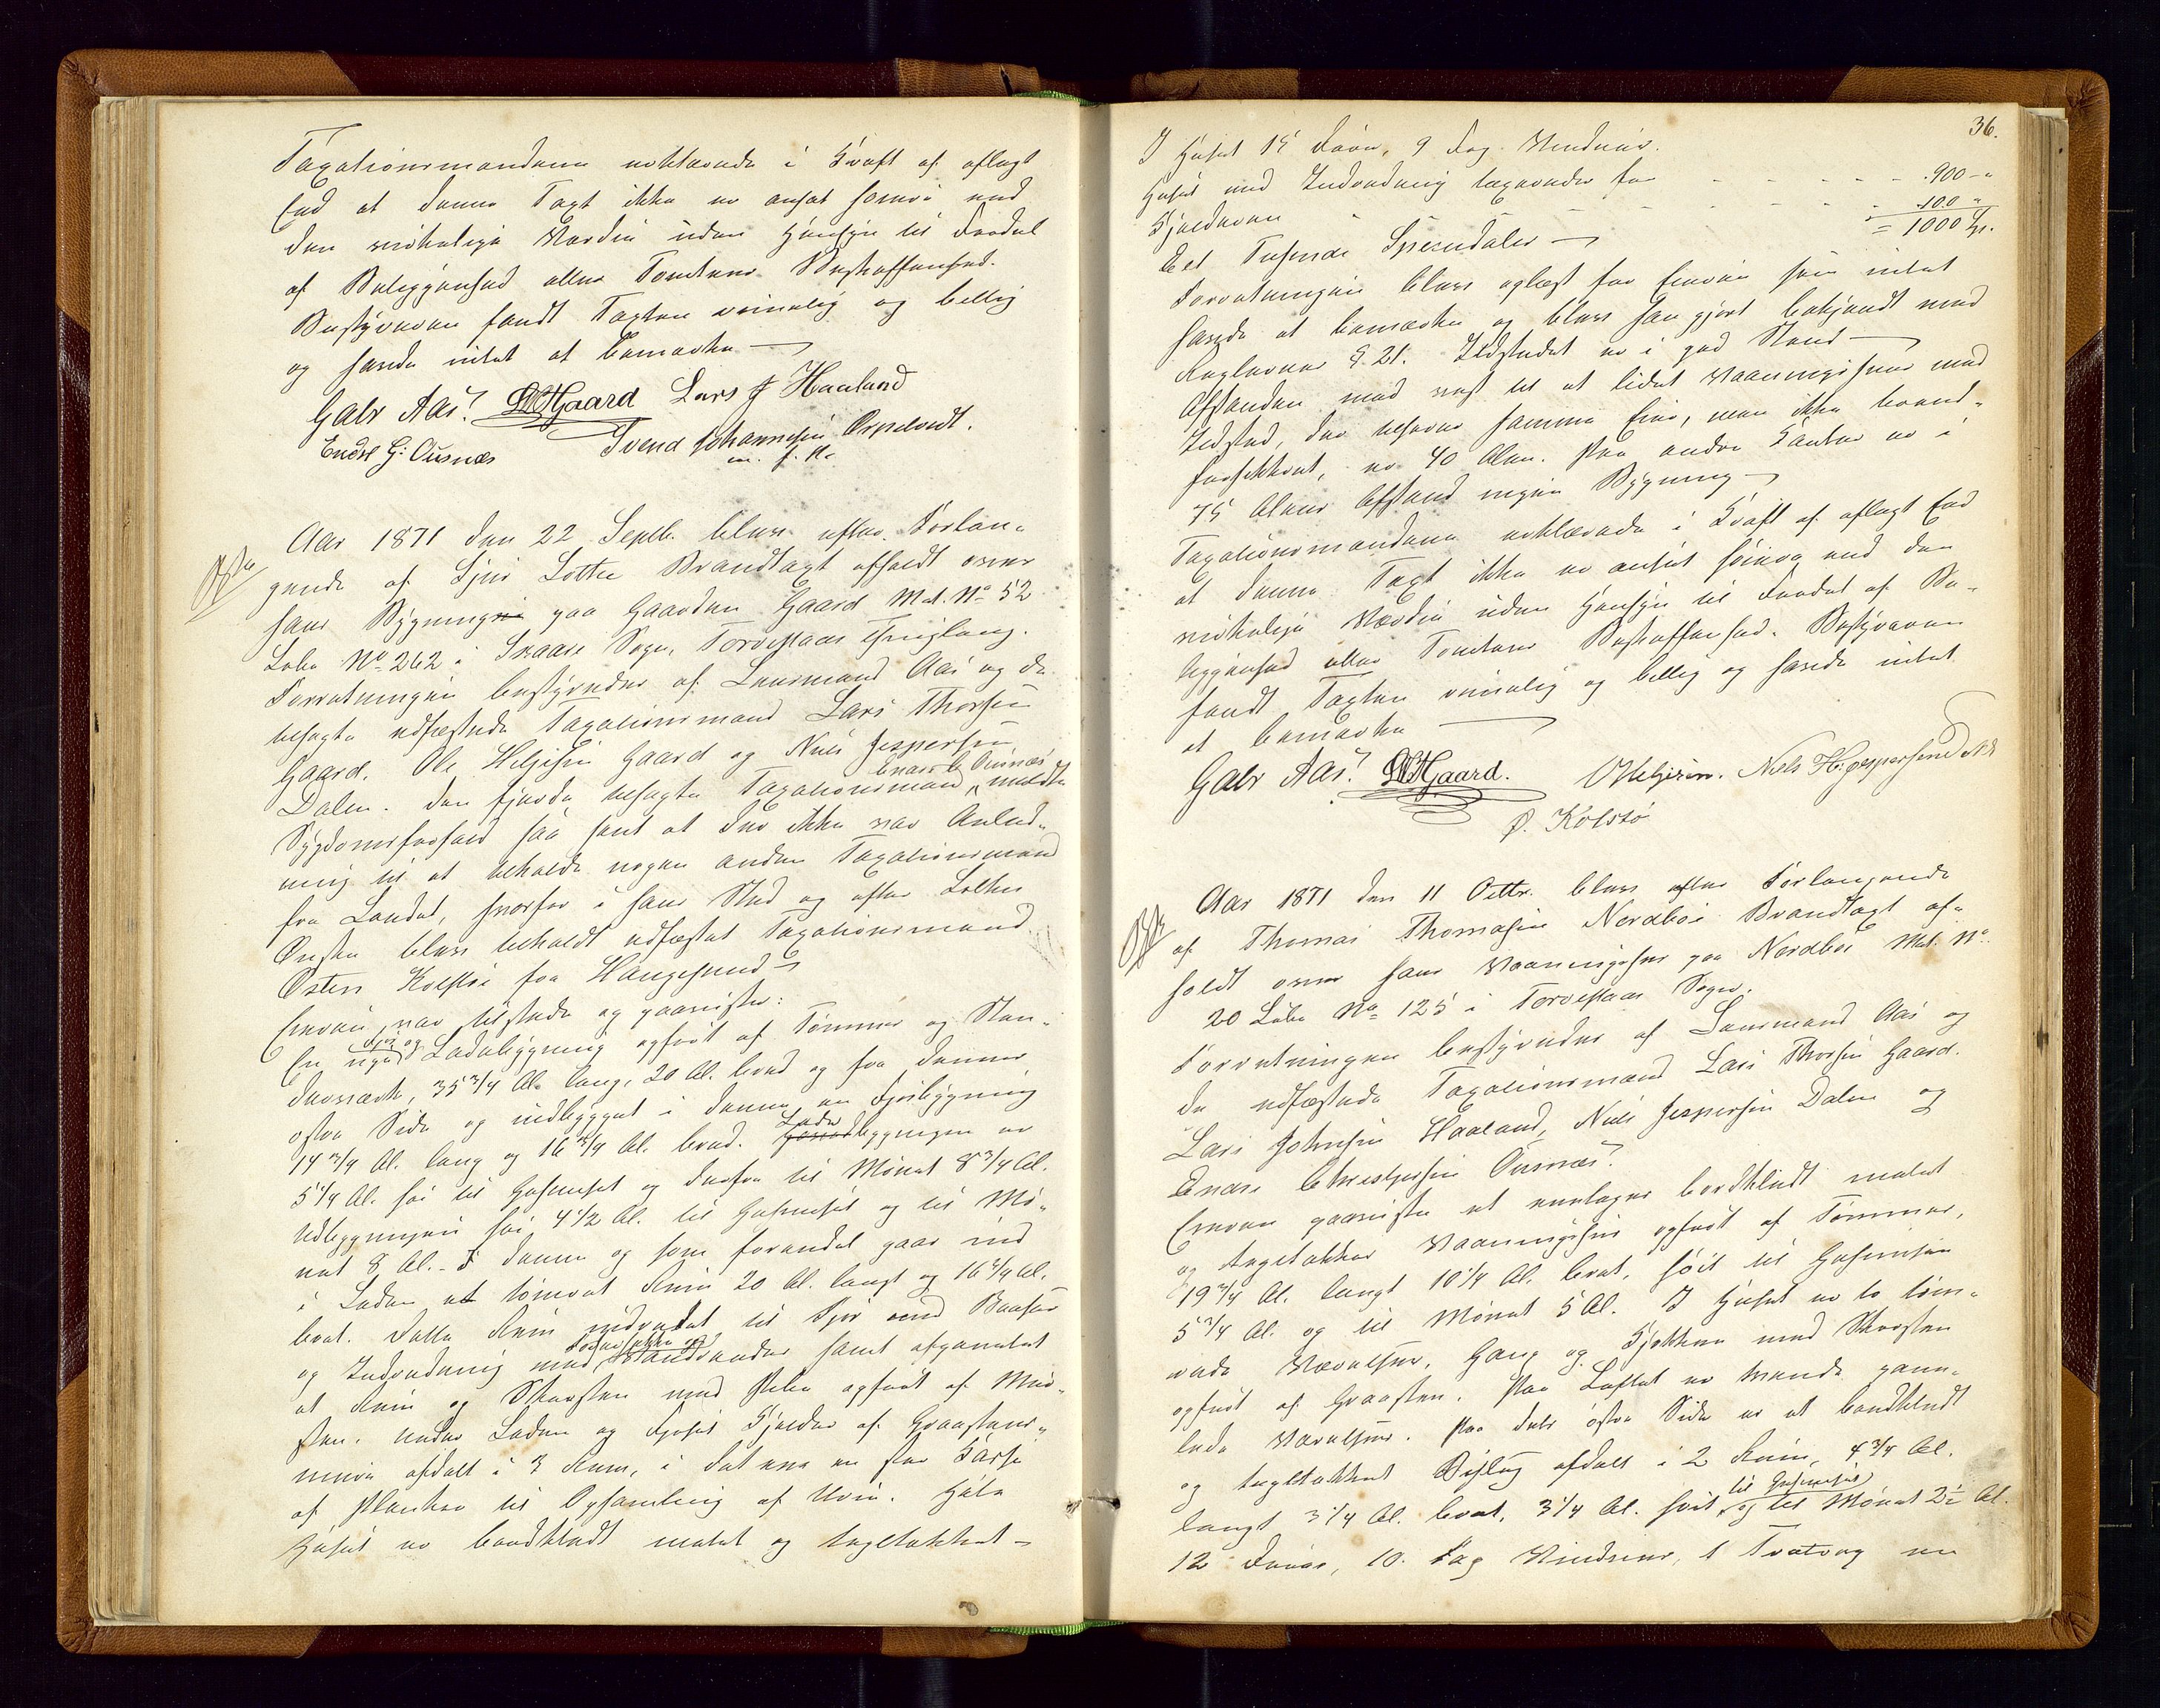 Taxationsmændene erklærede i Kraft af aflagt
Eed at denne Taxt ikke er ansat høiere end
den virkelige Værdie uden Hensyn til Fordel
af Beliggenhed eller Tomtens Beskaffenhed.
Bestyreren fandt Taxten rimelig og billig
og havde intet at bemærke
Gabr Aas. LThGaard Lars J Haaland
Endre G: Ousnæs Svend Johannesen Ospelvedt.
m. f. P.
Aar 1871 den 22 Septb. blev efter Forlan-
gende af Lothe Brandtaxt afholdt over
hans Bygning paa Gaarden Gaard Mat. No 52
Løbe No 262 i Skaare Sogn, Torvestad Thinglaug.
Forretningen bestyredes af Lensmand Aas og de
udfæstede Taxationsmænd Lars Thorsen
Gaard, Ole Helgesen Gaard og Niels Jespersen
Dalen. Den fjerde Taxationsmand Ousnæs meldte
Sygdomsforfald saa sent at der ikke var Anled-
ning til at beholde nogen anden Taxationsmand
fra Landet, hvorfor i hans Sted og efter Lothes
Ønske blev beholdt udfæstet Taxationsmand
Østen Kolstø fra Haugesund
Eieren var tilstede og paaviste:
En nye Fjøs og Ladebygning opført af Tømmer og Sten-
35 3/4 Al. lang, 20 Al. bred og fra dennes
østre Side og indbygget i denne en Fjøsbygning
14 3/4 Al. lang og 16 3/4 Al. bred. Ladebygningen er
5 1/4 Al. høi til Gesimset og derfra til Mønet 8 3/4 Al.
Udbygningen høi 4 1/2 Al. til Gesimset og til Mø-
net 8 Al. I denne og som forendet gaar ind
i Laden et tømret Rum 20 Al. langt og 16 3/4 Al.
bret. Dette Rum indredet til Fjøs med Baaser
og Indredning med samt afpanelet
et Rum og Skorsten med Pibe opført af Mur-
sten. Under Laden og Fjøset Kjelder af Graastens-
muur afdelt i 3 Rum, i det ene en stor Kasse
af Planker til Opsamling af Urin. Hele
Huset er bordklædt malet og tagtækket
36.
I Huset 15 Døre, 9 Fag Vinduer.
Huset med Indredning taxeredes for - - - 900 -"
Kjelderen - - - 100 "
Et Tusende Speciedaler = 1000 Sp.
Forretningen blev oplæst for Eieren som intet
havde at bemærke og blev han gjort bekjendt med
Reglernes §. 21. Ildstedet er i god Stand
Afstanden mod vest til et lidet Vaaningshuus med
Ildsted, der tilhører samme Eier, men ikke brand-
forsikkret, er 40 Alen. Paa andre Kanter er i
75 Alens Afstand ingen Bygning
Taxationsmændene erklærede i Kraft af aflagt Eed
at denne Taxt ikke er ansat høiere end den
virkelige Værdie uden Hensyn til Fordel af Be-
liggenhed eller Tomtens Beskaffenhed. Bestyreren
fandt Taxten rimelig og billig og havde intet
at bemærke
Gabr Aas. LThGaard. OHelgesen. Niels H: Jespersen Dale
Ø. Kolstø
Aar 1871 den 11 Octbr. blev efter Forlangende
af Thomas Thomasen Nordbø Brandtaxt af-
holdt over hans Vaaningshus paa Nordbø Mat. No
20 Løbe No 125 i Torvestad Sogn.
Forretningen bestyredes af Lensmand Aas og
de udfæstede Taxationsmænd Lars Thorsen Gaard.
Lars Johnsen Haaland, Niels Jespersen Dalen og
Endre Christophersen Ousnæs.
Eieren paaviste et bordklædt malet
og tagtækket Vaaningshus opført af Tømmer,
19 3/4 Al. langt 10 1/4 Al. bret, høit til Gesimsen
5 3/4 Al. og til Mønet 5 Al. I Huset er to tøm-
rede Værelser, Gang og Kjøkken med Skorsten
opført af Graasten. Paa Loftet er tvende pane-
lede Værelser. Paa dets østre Side er et bordklædt
og tagtækket Bislag afdelt i 2 Rum, 4 3/4 Al.
langt 3 1/4 Al. bret, 3 1/4 Al. høit til Gesimset og til Mønet 2 1/2 Al.
12 Døre, 10 Fag Vinduer, 1 en